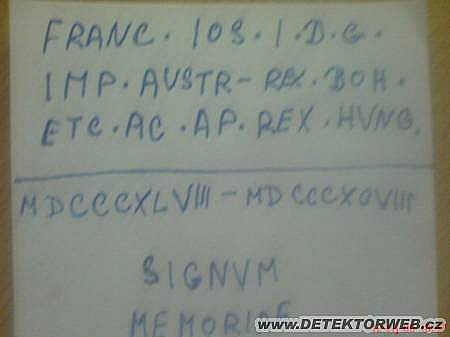 FRANC. IOS. I. D. G.
IMP. AVSTR - REX. BOH.
ETC. AC. AP. REX. HVNG.
MDCCCXLVIII - MDCCCXCVIII
SIGNVM
MEMORIAE
WWW.DETEKTORWEB.CZ